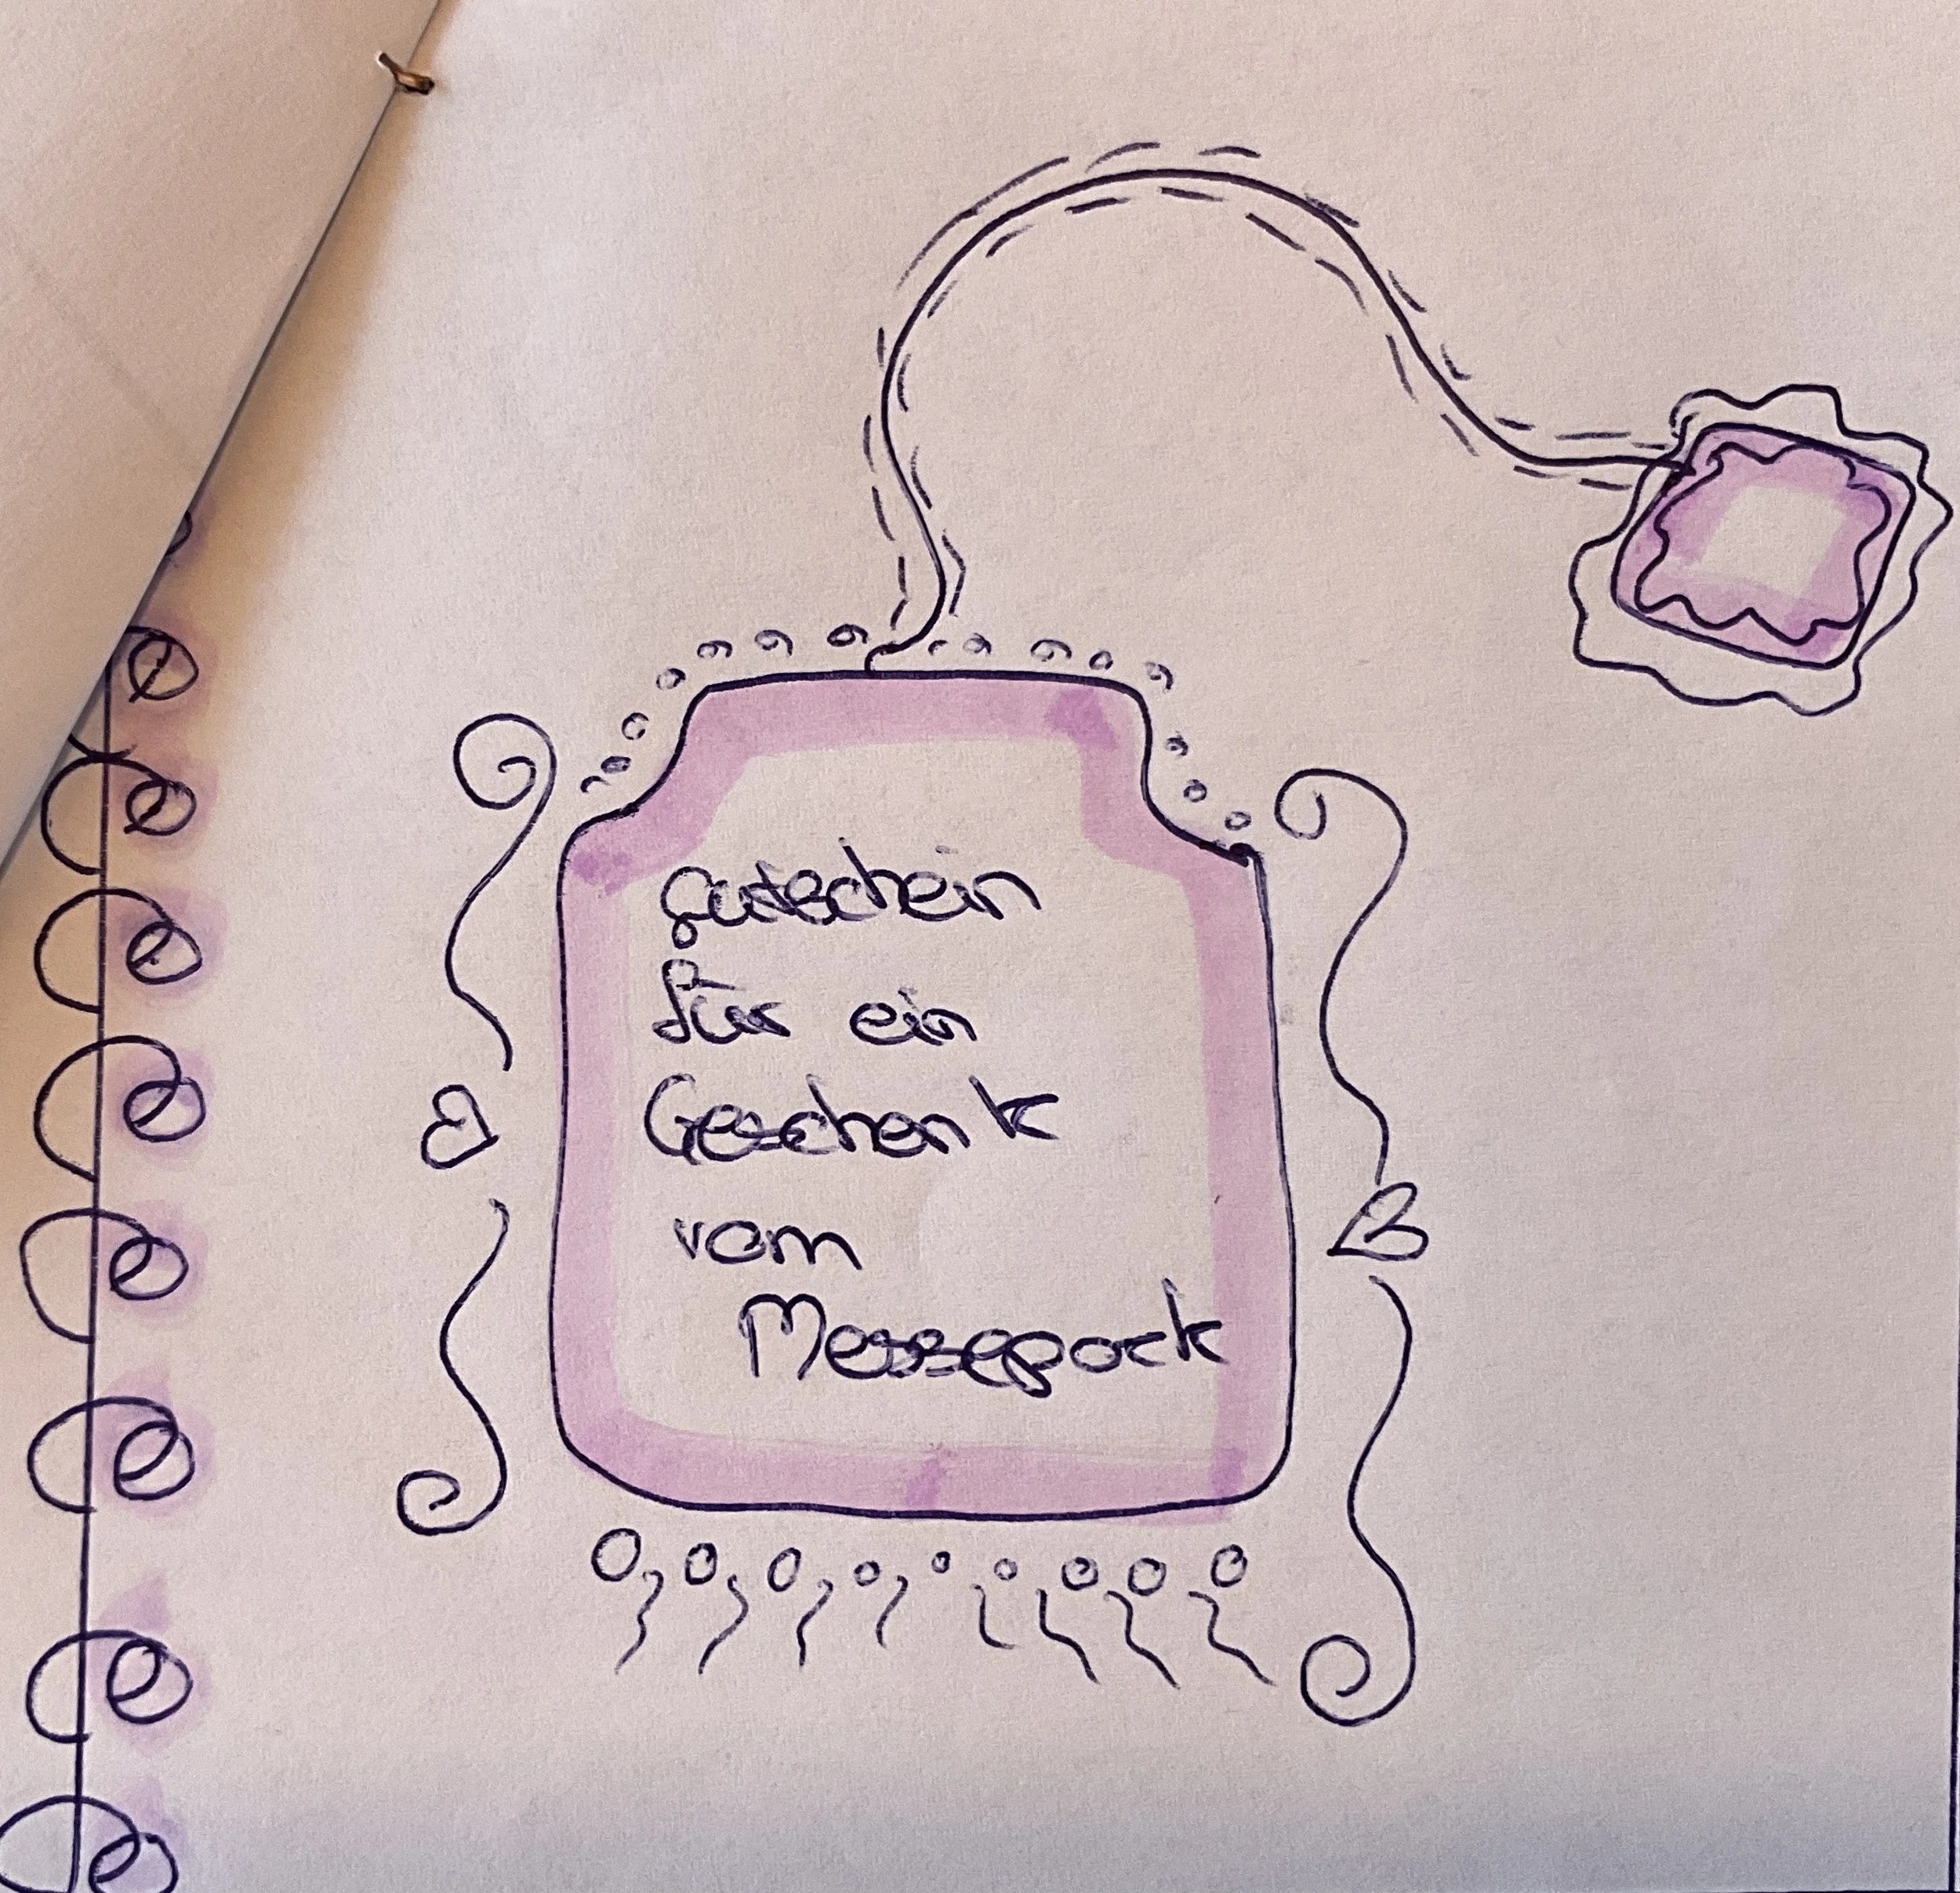 gutschein
für ein
Geschenk
vom
Messepark